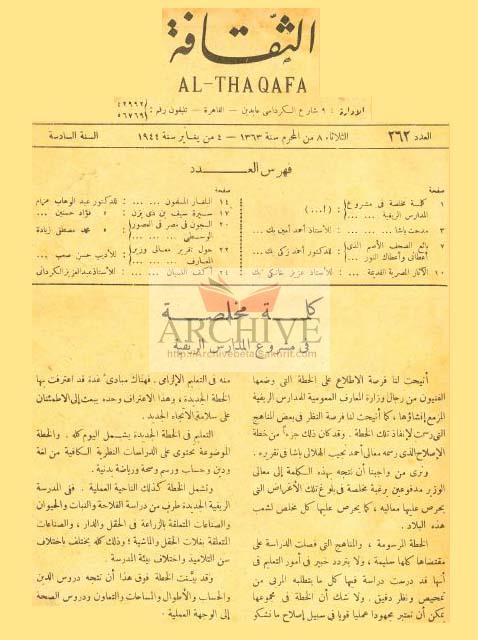 الثقافة
AL-THAQAFA
الإدارة : ٩ شارع الكرداسى عابدين — القاهرة — تليفون رقم : ٤٢٩٩٢ ٥٦٧٦٩
العدد ٢٦٢ الثلاثاء ٨ من المحرم سنة ١٣٦٣ — ٤ من يناير سنة ١٩٤٤ السنة السادسة
فهرس العدد
صفحة
١ كلمة مخلصة فى مشروع المدارس الريفية ... ... : (ا...)
٣ مدحت باشا ... ... : للأستاذ أحمد أمين بك ...
٧ بائع الصحف الأصم الذى أعطانى وأعطاك النور ... : للدكتور أحمد زكى بك ...
١٠ الآثار المصرية القديمة ... : للأستاذ عزيز خانكى بك
صفحة
١٤ التلغار الملفون ... ... : للدكتور عبد الوهاب عزام
١٧ سيرة سيف بن ذى يزن : « فؤاد حسنين ...
٢٠ السجون فى مصر فى العصور الوسطى ... : « محمد مصطفى زيادة
٢٢ حول تقرير معالى وزير المعارف ... : للأديب حسن صعب ...
٢٤ أكف النسيان ... ... : للأستاذ عبد العزيز الكردانى
كلمة مخلصة
فى مشروع المدارس الريفية
ARCHIVE
http://Archivebeta.Sakhrit.com
أتيحت لنا فرصة الاطلاع على الخطة التى وضعها
الفنيون من رجال وزارة المعارف العمومية للمدارس الريفية
المزمع إنشاؤها ، كما أتيحت لنا فرصة النظر فى بعض المناهج
التى رسمت لإنفاذ تلك الخطة . وقد كان ذلك جزءاً من خطة
الإصلاح الذى رسمه معالى أحمد نجيب الهلالى باشا فى تقريره .
ونرى من واجبنا أن نتجه بهذه الكلمة إلى معالى
الوزير مدفوعين برغبة مخلصة فى بلوغ تلك الأغراض التى
يحرص عليها معاليه ، كما يحرص عليها كل مخلص لشعب
هذه البلاد .
الخطة المرسومة ، والمناهج التى فصلت الدراسة على
مقتضاها كلها سليمة ، ولا يتردد خبير فى أمور التعليم فى
أنها قد درست دراسة فيها كل ما يتطلبه المربى من
تمحيص ونظر دقيق . ولا شك أن الخطة فى مجموعها
يمكن أن تعتبر مجهودا عمليا قويا فى سبيل إصلاح ما نشكو
منه فى التعليم الإلزامى . فهناك مبادئ عدة قد اعترفت بها
الخطة الجديدة ، وهذا الاعتراف وحده يبعث إلى الاطمئنان
على سلامة الاتجاه الجديد .
التعليم فى الخطة الجديدة يشمل اليوم كله . والخطة
الموضوعة تحتوى على الدراسات النظرية الكافية من لغة
ودين وحساب ورسم وصحة ورياضة بدنية .
وتشمل الخطة كذلك الناحية العملية . ففى المدرسة
الريفية الجديدة طرف من دراسة الفلاحة والنبات والحيوان
والصناعات المتعلقة بالزراعة فى الحقل والدار ، والصناعات
المتعلقة بغلات الحقل والماشية ؛ وذلك كله يختلف باختلاف
سن التلاميذ واختلاف بيئة المدرسة .
وقد بيّنت الخطة فوق هذا أن تتجه دروس الدين
والحساب والأطوال والمساحات والتعاون ودروس الصحة
إلى الوجهة العملية .